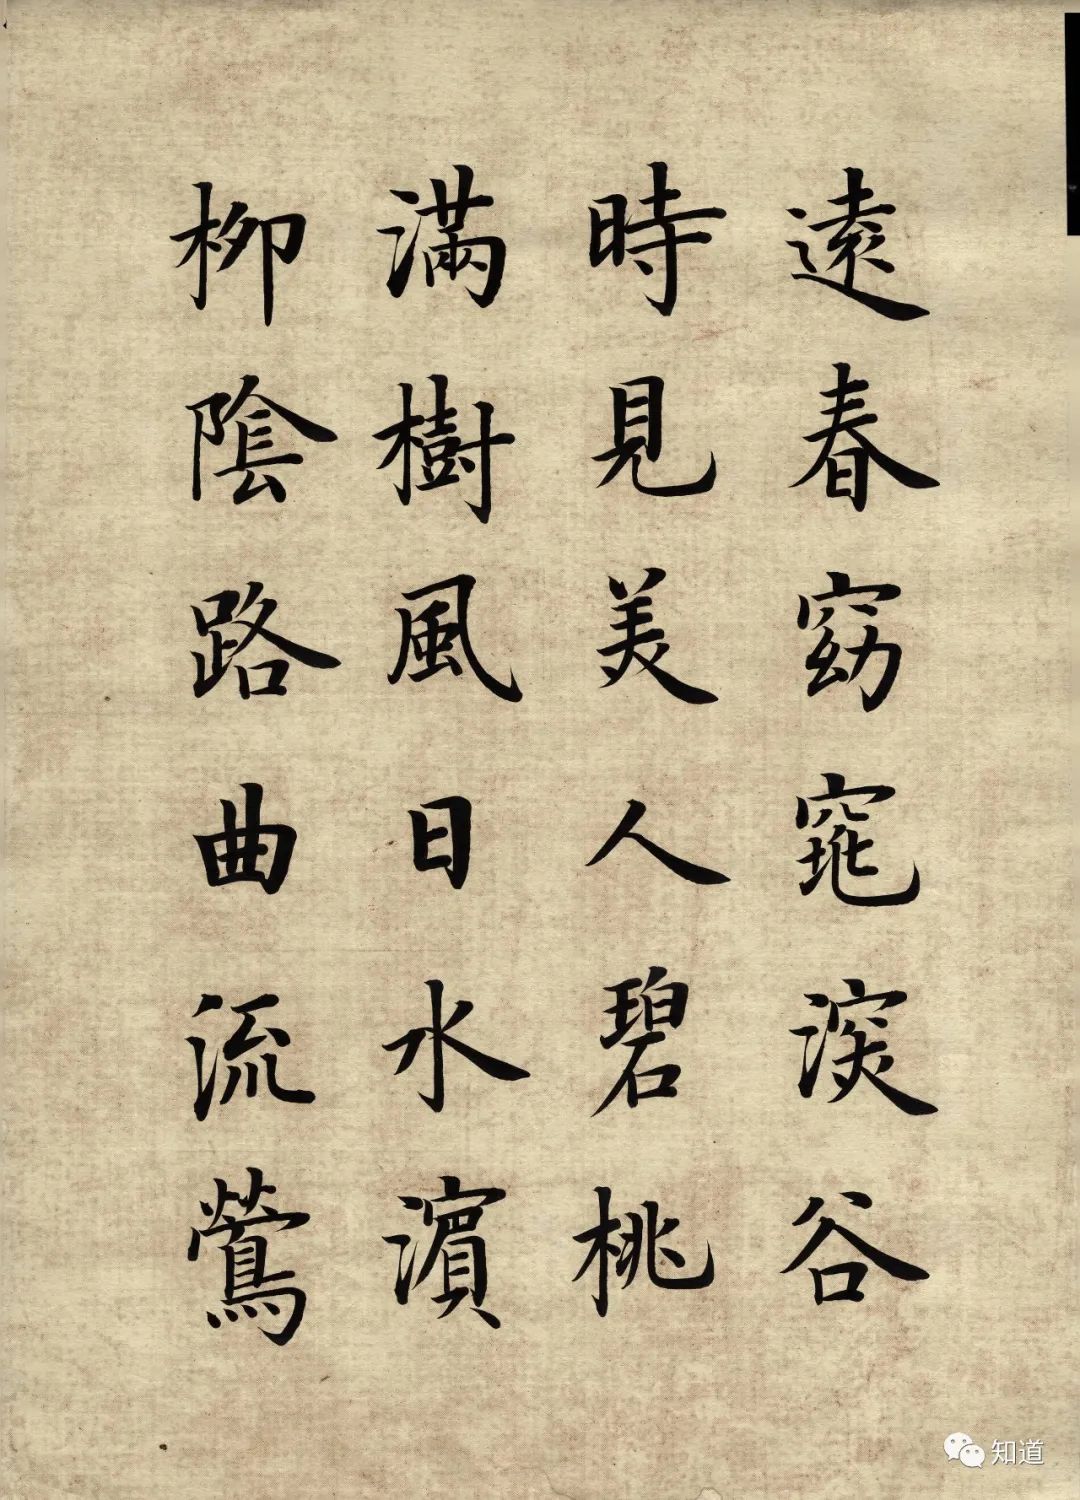 遠春窈窕深谷
時見美人碧桃
滿樹風日水濱
柳陰路曲流鶯
知道